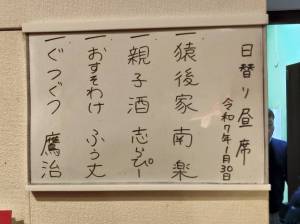 日替り昼席
令和7年1月30日
一猿後家 南楽
一親子酒 志らぴー
一おすそわけ ふう丈
一ぐつぐつ 鷹治